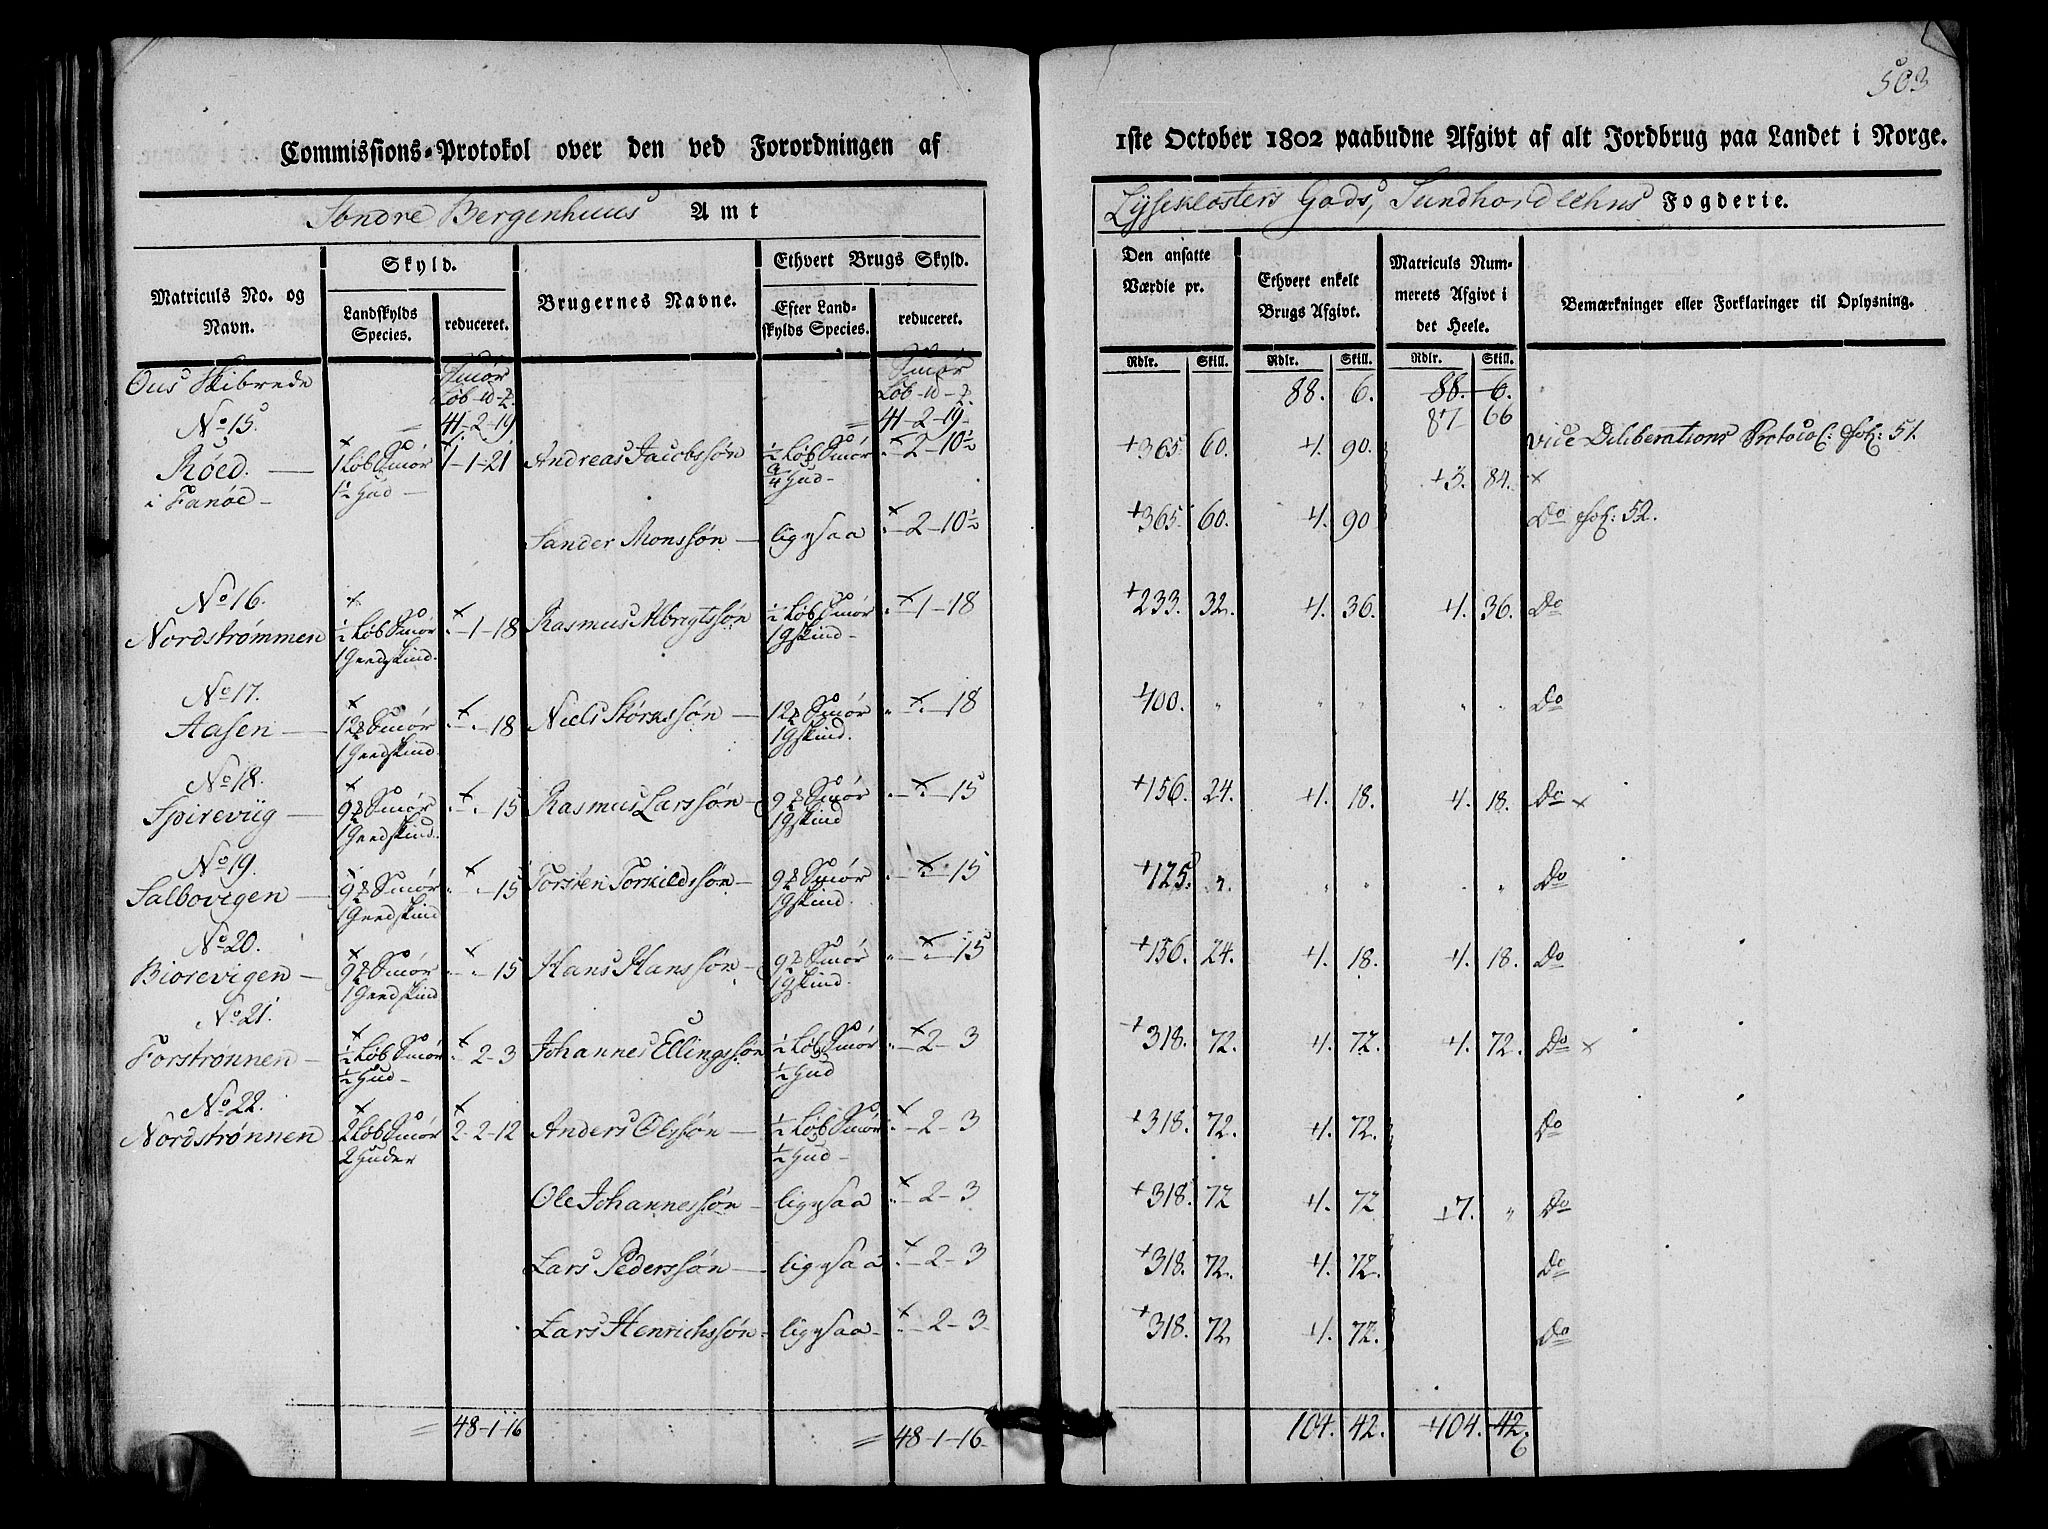 503
Commissions-Protokol over den ved Forordningen af 1ste October 1802 paabudne Afgivt af alt Jordbrug paa Landet i Norge.
Søndre Bergenhuus Amt Lyseklosters Gods, Sundhordlehns Fogderie.
Matriculs No. og Navn.
Skyld.
Landskylds Species.
reduceret.
Brugernes Navne.
Ethvert Brugs Skyld.
Efter Landskylds Species.
reduceret.
Den ansatte Værdie pr.
Rdlr. Skill.
Ethvert enkelt Brugs Afgivt.
Rdlr. Skill.
Matriculs Nummerets Afgivt i det Heele.
Rdlr. Skill.
Bemærkninger eller Forklaringer til Oplysning.
Ous Skibrede Smør Smør
88. 6. 88. 6.
No 15. 41-2-19 41-2-19 87 66
Røed 1 Løb Smør 1-1-21 Andreas Jacobssøn ½ Løb Smør 2-10½ 365. 60. 1. 90. Vide Deliberations Protocol: fol: 51.
i Fanøe 1½ Hud ¾ Hud 3. 84.
Sander Monssøn ligesaa 2-10½ 365. 60. 1. 90 Do fol: 52.
No 16.
Nordstrømmen ½ Løb Smør 1-18 Rasmus Albregtssøn ½ Løb Smør 1-18 233. 32. 1. 36. 1. 36. Do
1 Geedskind 1 Gskind
No 17.
Aasen 12 Smør 18 Niels Størkssøn 12 Smør 18 400. " " " " " Do
1 Geedskind 1 Gskind
No 18.
Spireviig 9 Smør 15 Rasmus Larssøn 9 Smør 15 156. 24. 1. 18. 1. 18. Do
1 Geedskind 1 Gskind
No 19.
Salbovigen 9 Smør 15 Torsten Torkildssøn 9 Smør 15 125. " " " " " Do
1 Geedskind 1 Gskind
No 20.
Biorevigen 9 Smør 15 Hans Hanssøn 9 Smør 15 156. 24. 1. 18. 1. 18. Do
1 Geedskind 1 Gskind
No 21.
Forstrønnen ½ Løb Smør 2-3 Johannes Ellingssøn ½ Løb Smør 2-3 318. 72. 1. 72. 1. 72. Do
½ Hud ½ Hud
No 22.
Nordstrønnen 2 Løb Smør 2-2-12 Anders Olssøn ½ Løb Smør 2-3 318. 72. 1. 72. Do
2 Huder ½ Hud
Ole Johannessøn ligesaa 2-3 318. 72 1. 72 7. " Do
Lars Pederssøn ligesaa 2-3 318. 72. 1. 72. Do
Lars Henrichssøn ligesaa 2-3 318. 72 1. 72. Do
48-1-16 48-1-16 104. 42. 104. 42
6